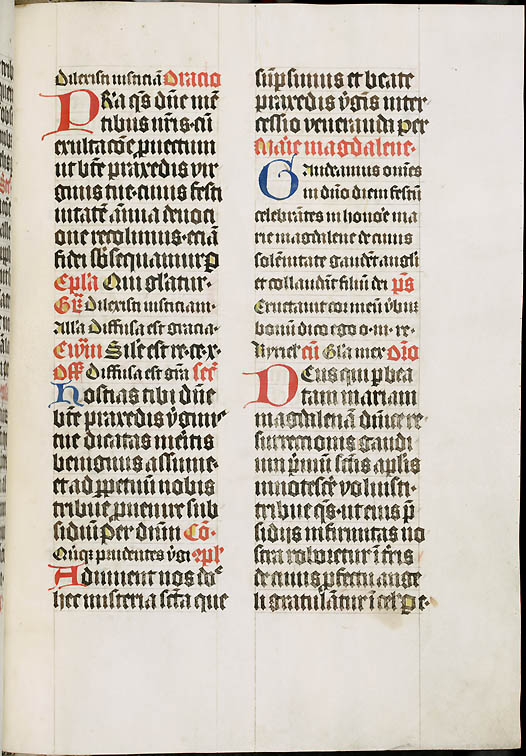 Dilexisti iusticiā Oracio
PRa q̄s dn̄e mē
tibus nr̄is cū
exultacōe prouectum
ut bt̄e praxedis vir
ginis tue cuius festi
uitatē ānua deuoci
one recolimus etiā
fidei sb̄sequamur p
Epl̄a Qui gl̄atur
Gr̄ Dilexisti iusticiam
All̄a Diffusa est gracia
Ewm̄ Sile est re ce x
Off Diffusa est gr̄a secr̄
Hostias tibi dn̄e
bt̄e praxedis v̄ginis
tue dicatas meritis
benignus assume
et ad ꝑpetuū nobis
tribue ꝓuenire sub
sidiū per dn̄m Cō
Quīqȝ prudentes v̄gi ꝯpl
Adiuuent nos dn̄e
hec misteria scā que
sūpsimus et beate
praxedis v̄gīs inter
cessio veneranda per
Marīe magdalene
Gaudeamus om̄es
in dn̄o diem festū
celebrātes in honōe ma
rie magdalene de cuius
solēnitate gaudēt angli
et collaudāt filiū dei ps̄
Eructauit cor meū v̄bū
bonū dico ego o m re
Kyriel cū Gl̄a mer Or̄o
Deus qui p̄bea
tam mariam
magdalenā dn̄ice re
surrectionis gaudi
um p̄mū sc̄īs aplīs
innotescē voluisti
tribue q̄s ut eius p̄
sidiis infirmitas no
stra roboretur ī tr̄is
de cuius ꝓfectu ange
li gratulātur ī cel p e